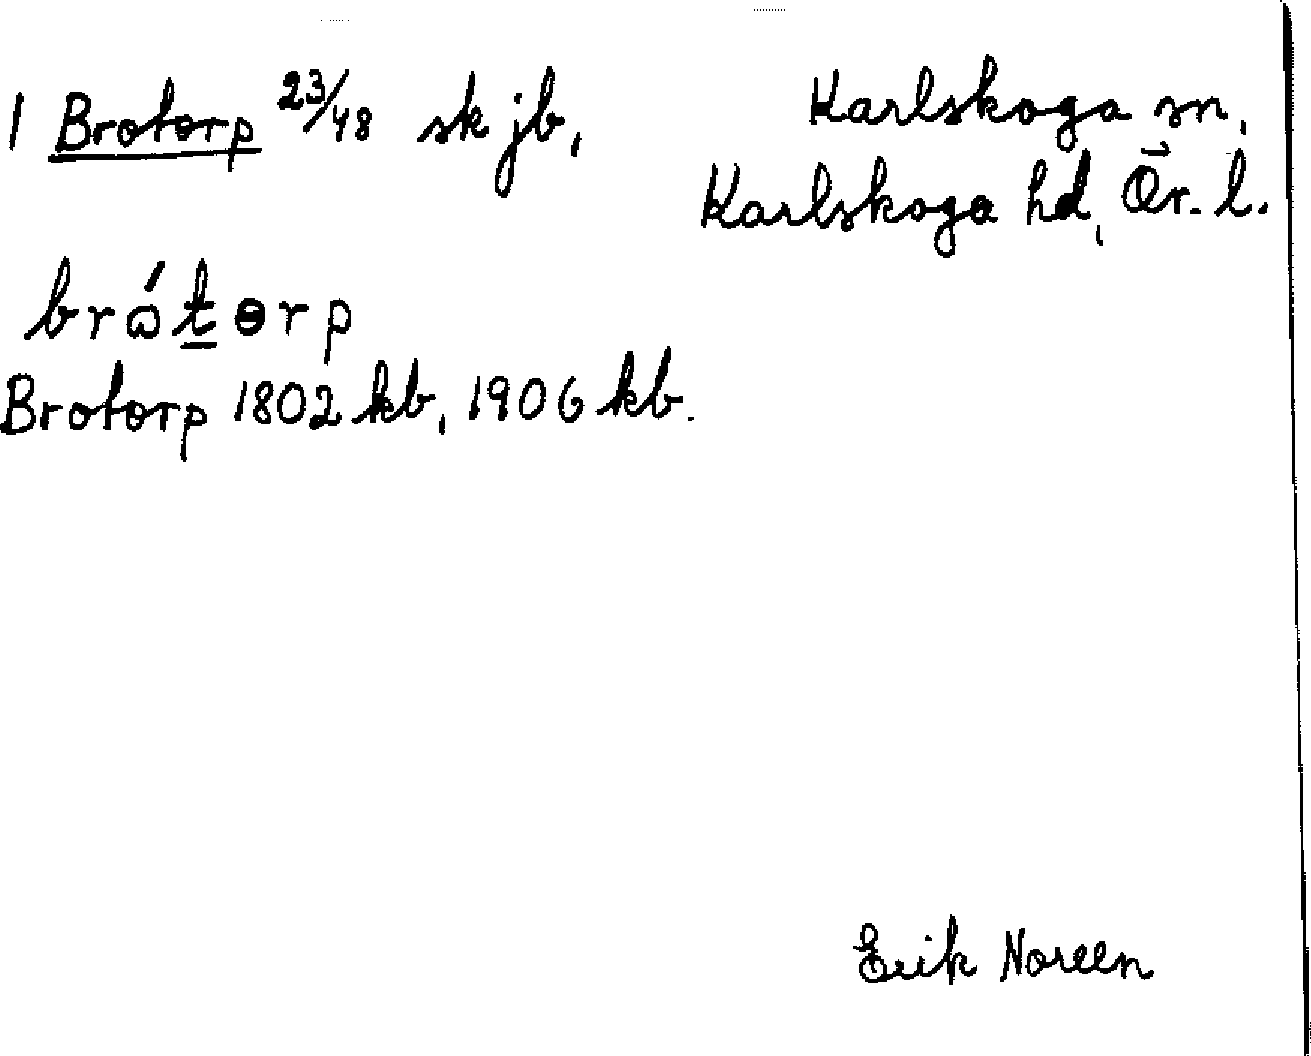 1 Brotorp 23/48 sk jb,
Karlskoga sn,
Karlskoga hd, Ör. l.
brótɵrp
Brotorp 1802 kb, 1906 kb.
Erik Noreen